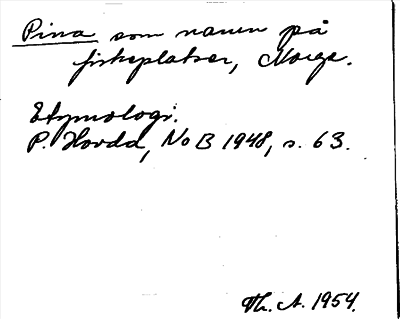 Pina som namn på
fiskeplatser, Norge.
Etymologi.
P. Hovda, NoB 1948, s. 63.
Th. A. 1954.